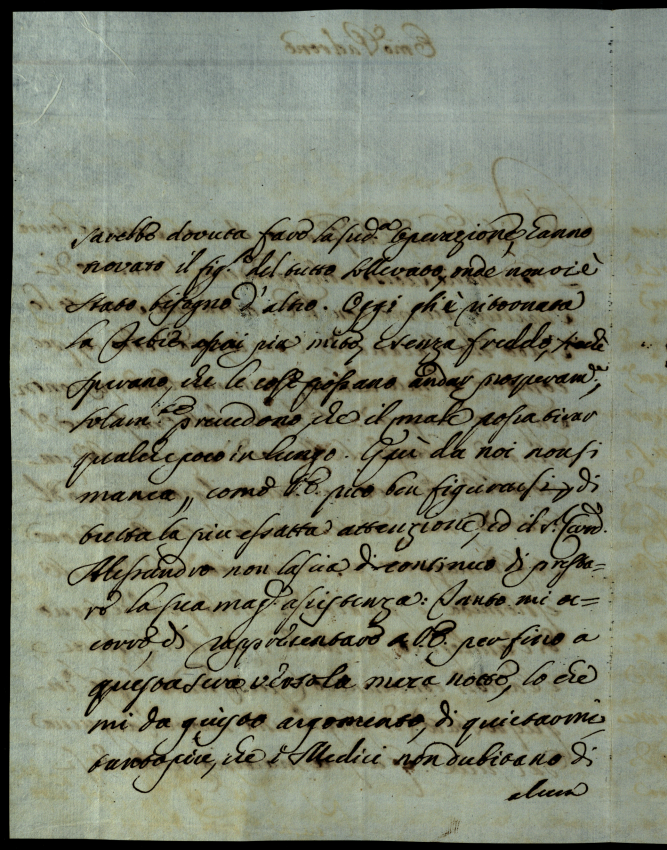 sarebbe dovuta fare la sud.ª operazione, hanno
trovato il sig.r del tutto sollevato, onde non vi è
stato bisogno d'altro. Oggi gli è ritornata
la febre assai più mite, e senza freddo,
sperano, che le cose possano andar prosperam.e,
solam.te prevedono che il male possa tirar
qualche poco in lungo. Quì da noi non si
manca, come V.E. può ben figurarsi, di
tutta la più essatta attenzione, ed il S.r Card.
Alessandro non lascia di continuo di presta=
re la sua mag.r assistenza: Tanto mi oc=
corre di rappresentare a V.E. per fino a
questa sera verso la meza notte, lo che
mi da questo argomento, di quietarmi
tanto più, che i Medici non dubitano di
alcun